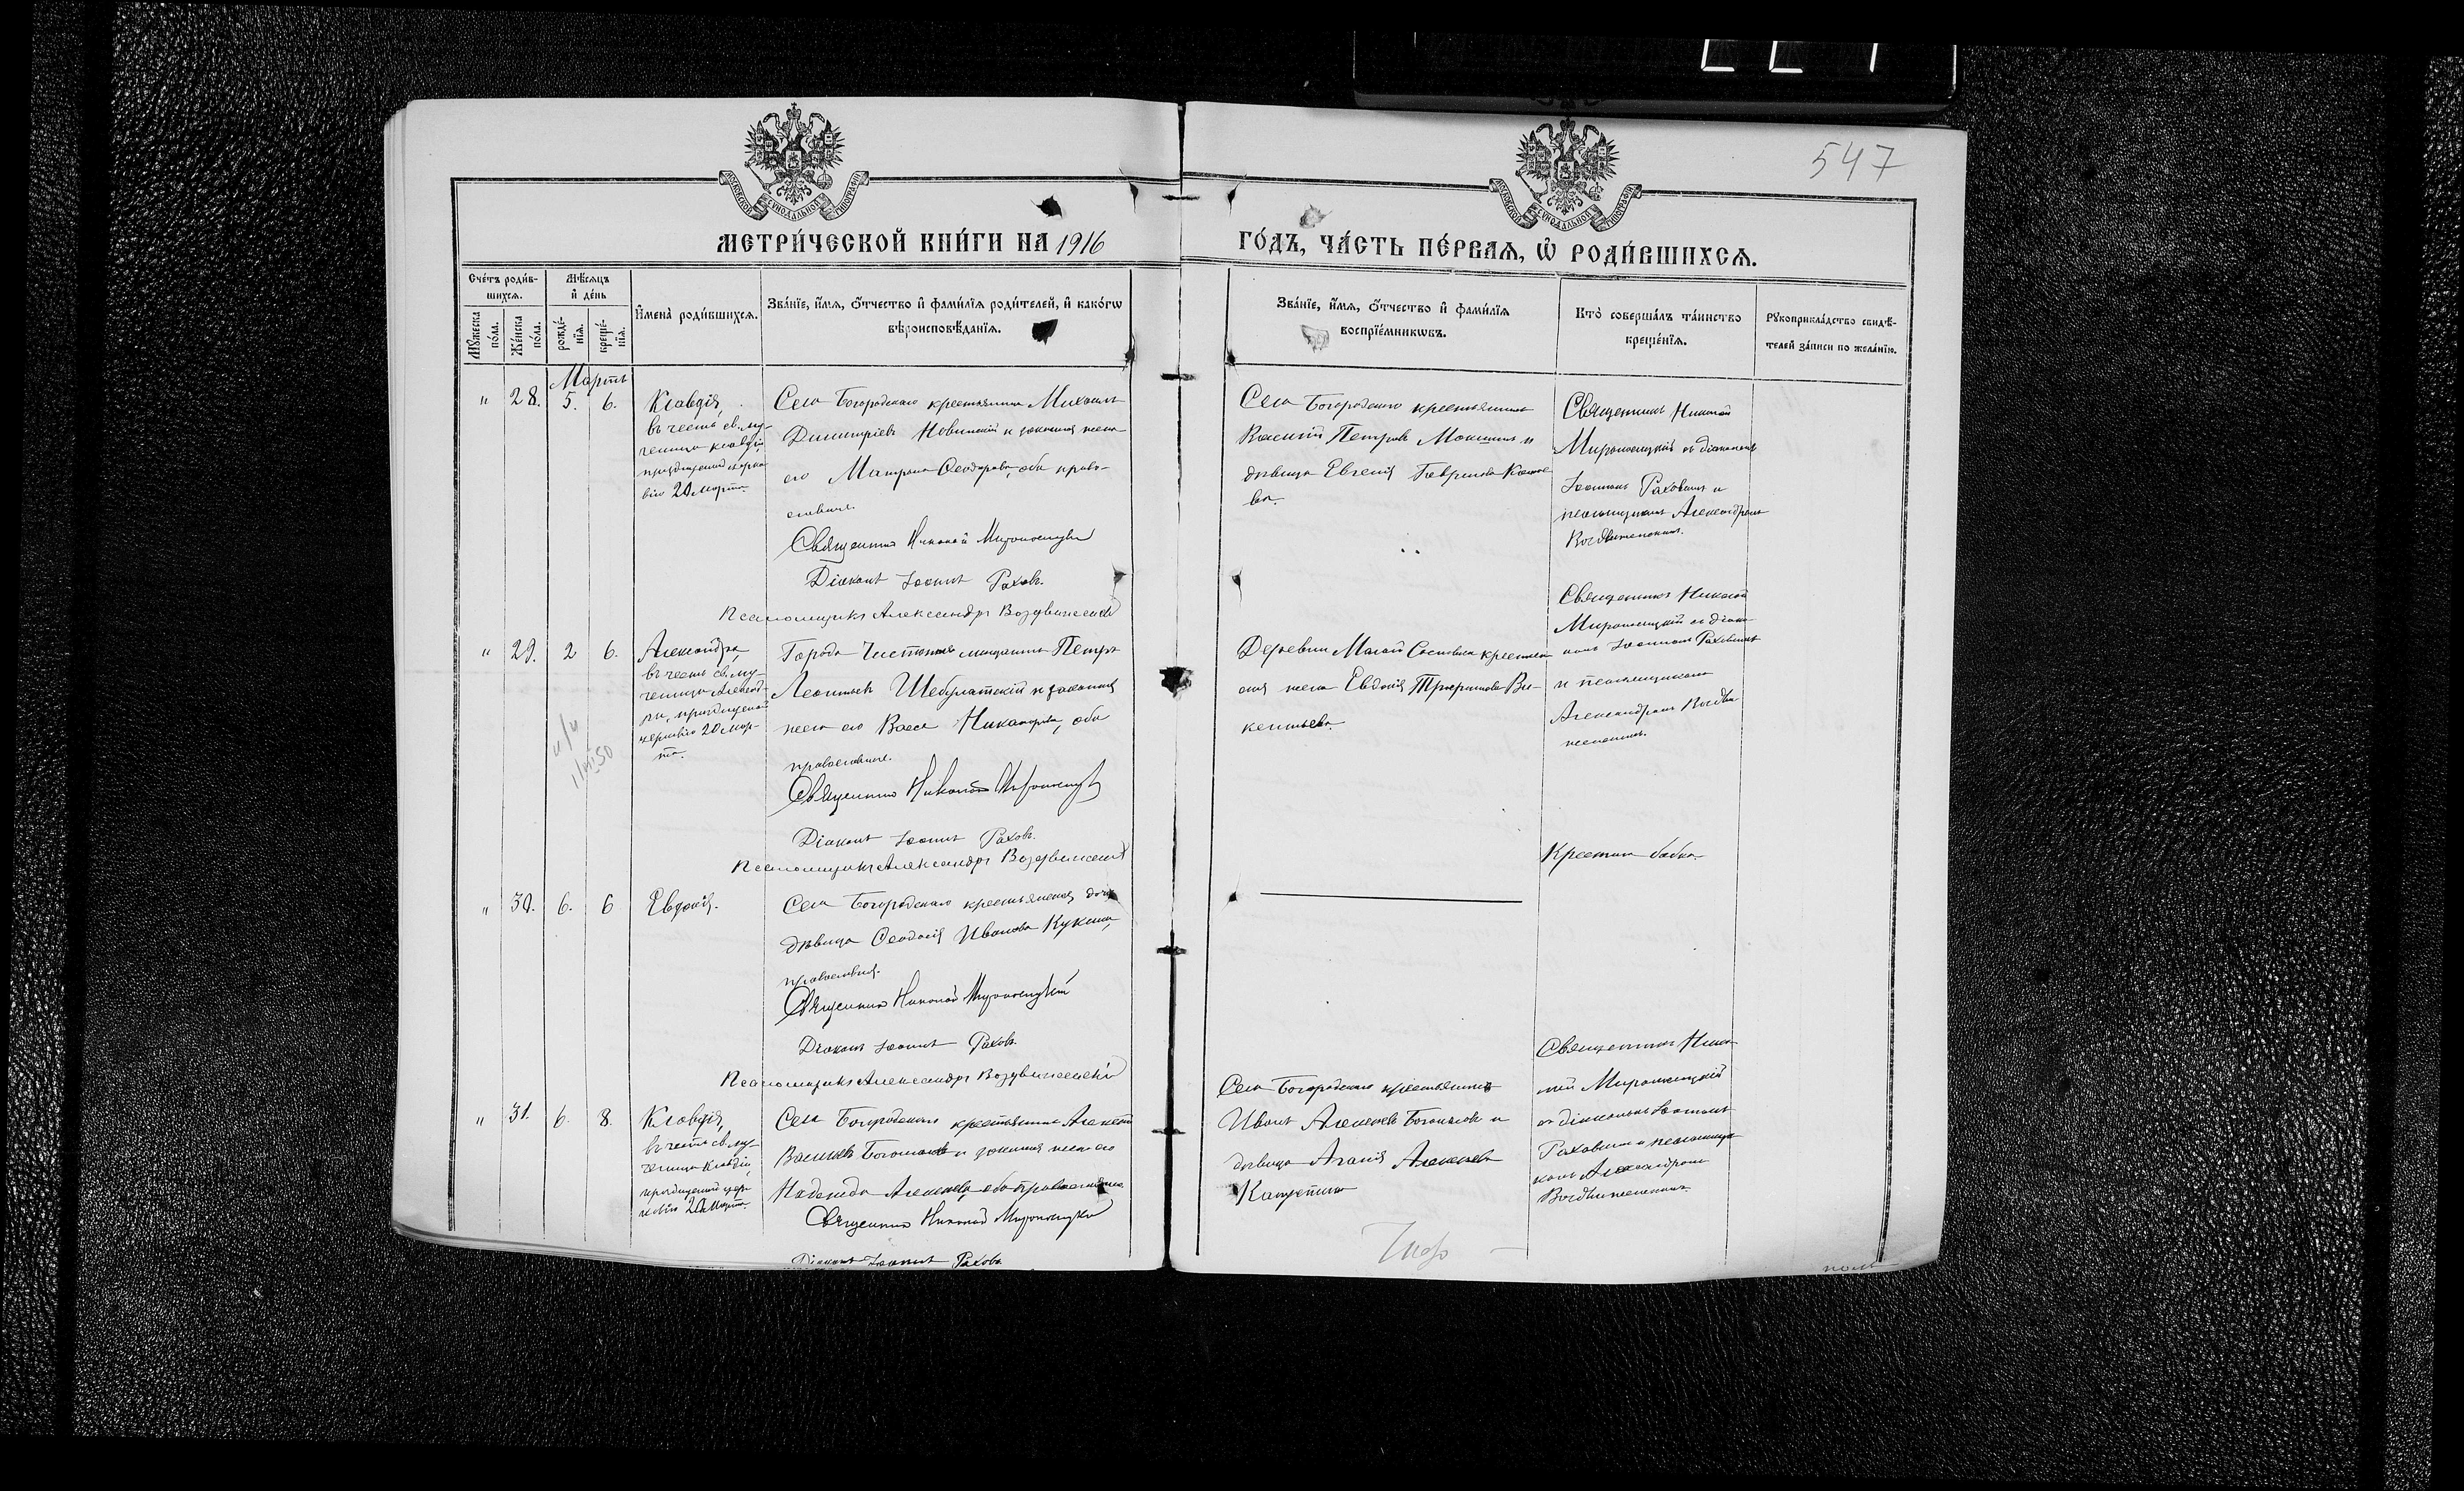 547
МЕТРИ́ЧЕСКОЙ КНИ́ГИ НА 1916
ГО́ДЪ, ЧА́СТЬ ПЕ́РВАѦ, Ѡ҆ РОДИ́ВШИХСѦ.
Сче́тъ роди́в-
шихсѧ.
Мꙋ́жеска
по́ла.
Же́нска
по́ла.
Мѣ́сѧцъ
и҆ де́нь
рожде́-
нїѧ.
креще́-
нїѧ.
И҆мена̀ роди́вшихсѧ.
Зва́нїе, и҆́мѧ, ѻ҆́тчество и҆ фами́лїѧ роди́телей, и҆ како́гѡ
вѣроисповѣ́данїѧ.
Зва́нїе, и҆́мѧ, ѻ҆́тчество и҆ фами́лїѧ
воспрїе́мникѡвъ.
Кто̀ соверша́лъ та́инство
креще́нїѧ.
Рꙋкоприкла́дство свидѣ́-
телей за́писи по жела́нїю.
Мартъ
" 28. 5. 6.
Клавдія,
въ честь св. му-
ченицы Клавдіи,
20 марта.
Села Богородскаго крестьянинъ Михаилъ
Димитріевъ Новинскій и законная жена
его Матрона Ѳеодорова, оба право-
славные.
Священникъ Николай Мироносицкій
Діаконъ Іоаннъ Раховъ.
Псаломщикъ Александръ Воздвиженскій
Села Богородскаго крестьянинъ
Василій Петровъ Мокшинъ и
дѣвица Евгенія Гаврилова
ва.
Священникъ Николай
Мироносицкій съ діакономъ
Іоанномъ Раховымъ и
псаломщикомъ Александромъ
Воздвиженскимъ.
" 29. 2 6.
Александра,
въ честь св. му-
ченицы Александ-
ры, празднуемой
церковію 20 мар-
та.
Города Чистополя мѣщанинъ Петръ
Леонтьевъ и законная
жена его Васса Никанорова, оба
православные.
Священникъ Николай Мироносицкій
Діаконъ Іоаннъ Раховъ.
Псаломщикъ Александръ Воздвиженскій
Деревни Малой Сосновки крестьян-
ская жена Евдокія Ви-
кентьева.
Священникъ Николай
Мироносицкій съ діако-
номъ Іоанномъ Раховымъ
и псаломщикомъ
Александромъ Воздви-
женскимъ.
" 30. 6. 6
Евдокія.
Села Богородскаго крестьянская дочь
дѣвица Ѳеодосія Иванова Кукина,
православная.
Священникъ Николай Мироносицкій
Діаконъ Іоаннъ Раховъ
Псаломщикъ Александръ Воздвиженскій
Крестила бабка.
" 31. 6. 8.
Клавдія,
въ честь св. му-
ченицы Клавдіи,
празднуемой цер-
ковію 20 марта.
Села Богородскаго крестьянинъ Алексѣй
Васильевъ и законная жена его
Надежда Алексѣева, оба православные.
Священникъ Николай Мироносицкій
Діаконъ Іоаннъ Раховъ
Села Богородскаго крестьянинъ
Иванъ Алексѣевъ и
дѣвица Агаѳія Алексѣева
Священникъ Нико-
лай Мироносицкій
съ діакономъ Іоанномъ
Раховымъ и псаломщи-
комъ Александромъ
Воздвиженскимъ.